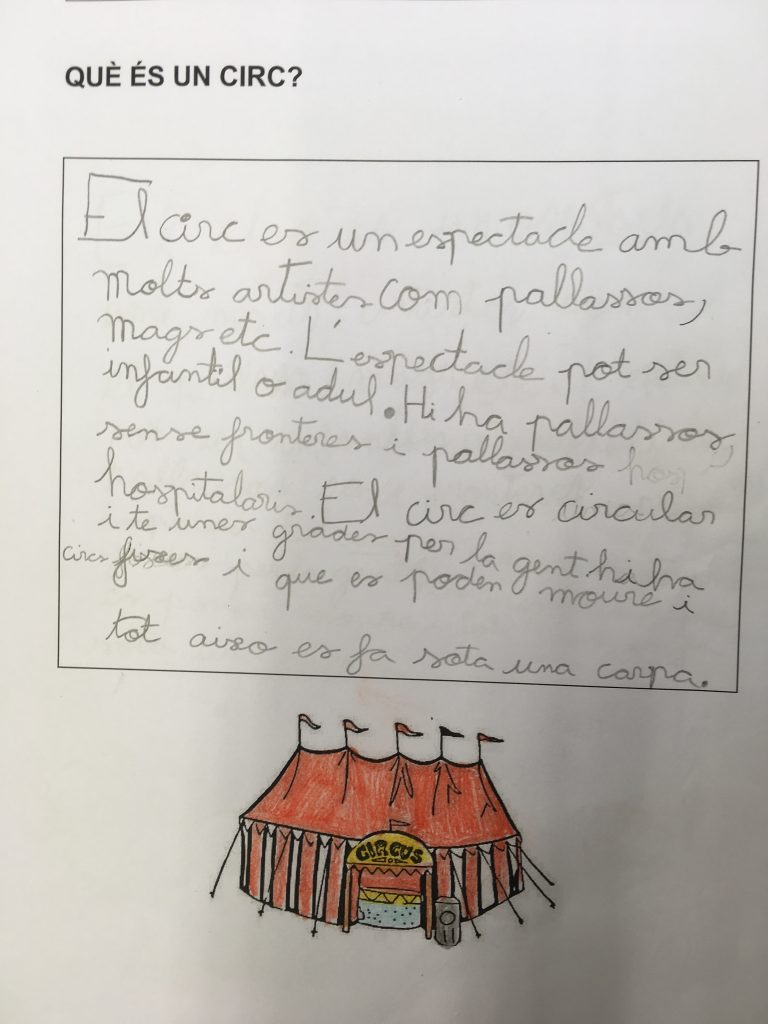 QUÈ ÉS UN CIRC?
El circ es un espectacle amb
molts artistes com pallassos,
mags etc. L'espectacle pot ser
infantil o adul. Hi ha pallassos,
sense fronteres i pallassos hos
hospitalaris. El circ es circular
i te unes grades per la gent hi ha
circs fixes i que es poden moure i
tot aixo es fa sota una carpa.
CIRCUS